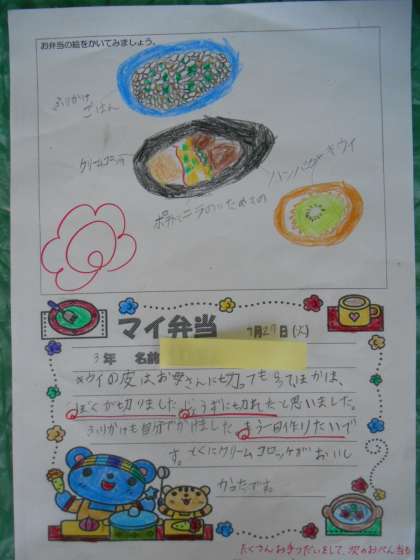 お弁当の絵をかいてみましょう。
ふりかけ
ごはん
クリームコロッケ
ポテトとニラのいためもの
ハンバーグ
キウイ
マイ弁当
7月29日(火)
3年 名前
キウイの皮は、お母さんに切ってもらってほかは、
ぼくが切りました。じょうずに切れたと思いました。
ふりかけも自分でかけました。もう一回作りたいで
す。とくにクリームコロッケがおいし
かったです。
たくさんお手つだいをして、次のおべん当も